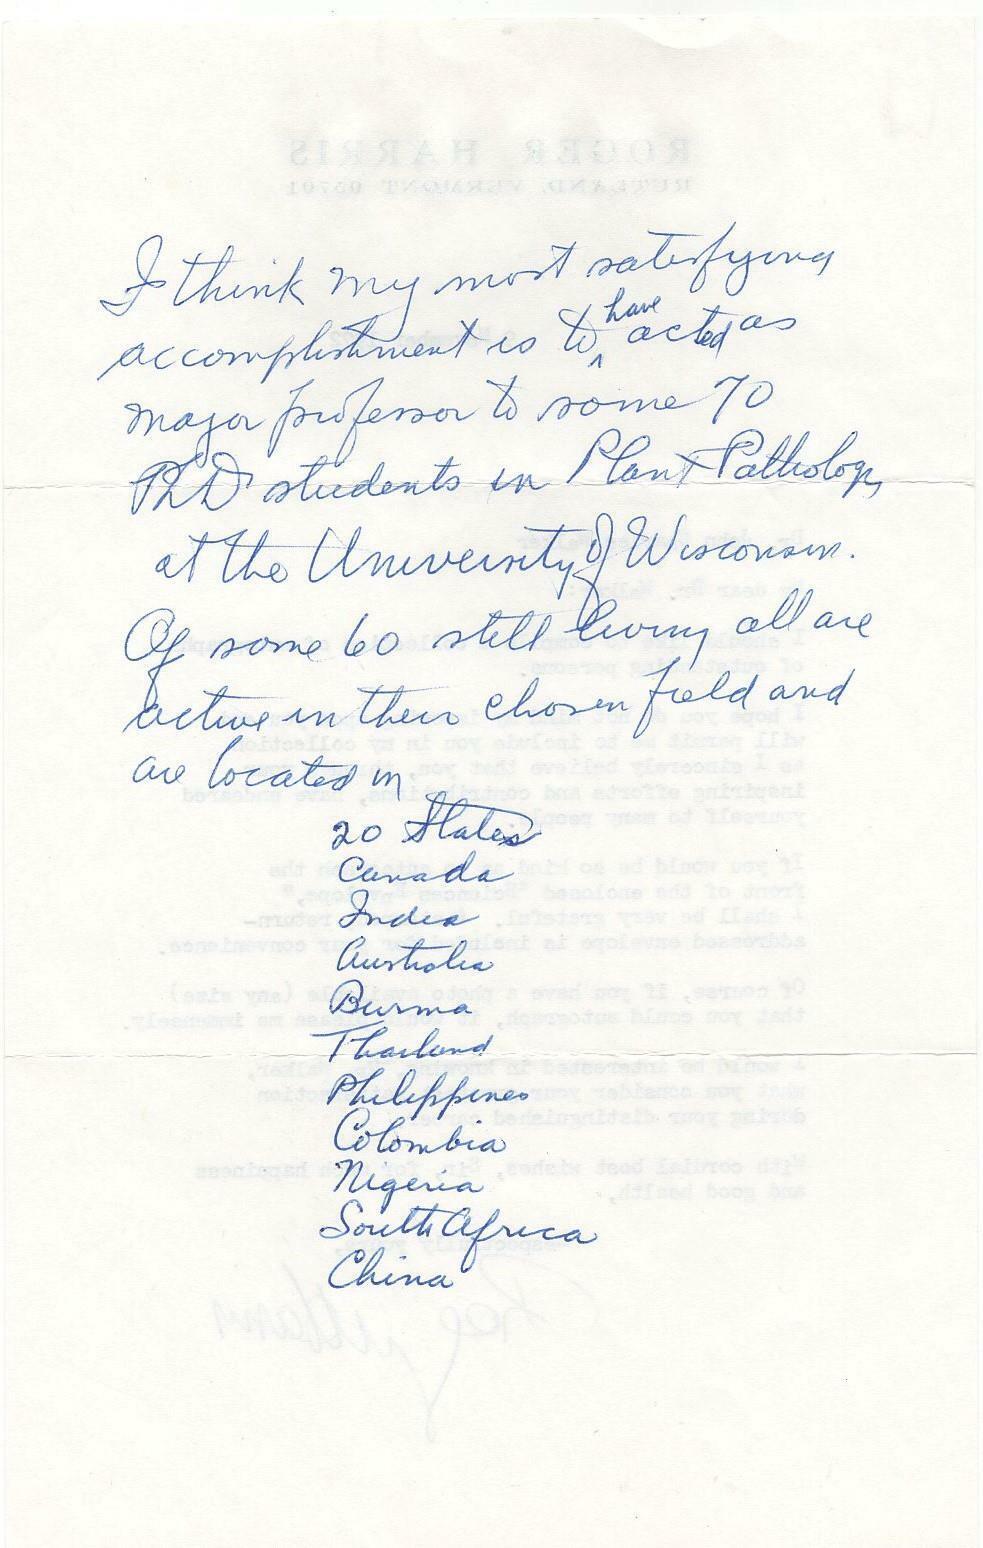 I think my most satisfying
accomplishment is to have acted as
major professor to some 70
PhD students in Plant Pathology
at the University of Wisconsin.
Of some 60 still living all are
active in their chosen field and
are located in
20 States
Canada
India
Australia
Burma
Thailand
Philippines
Colombia
Nigeria
South Africa
China